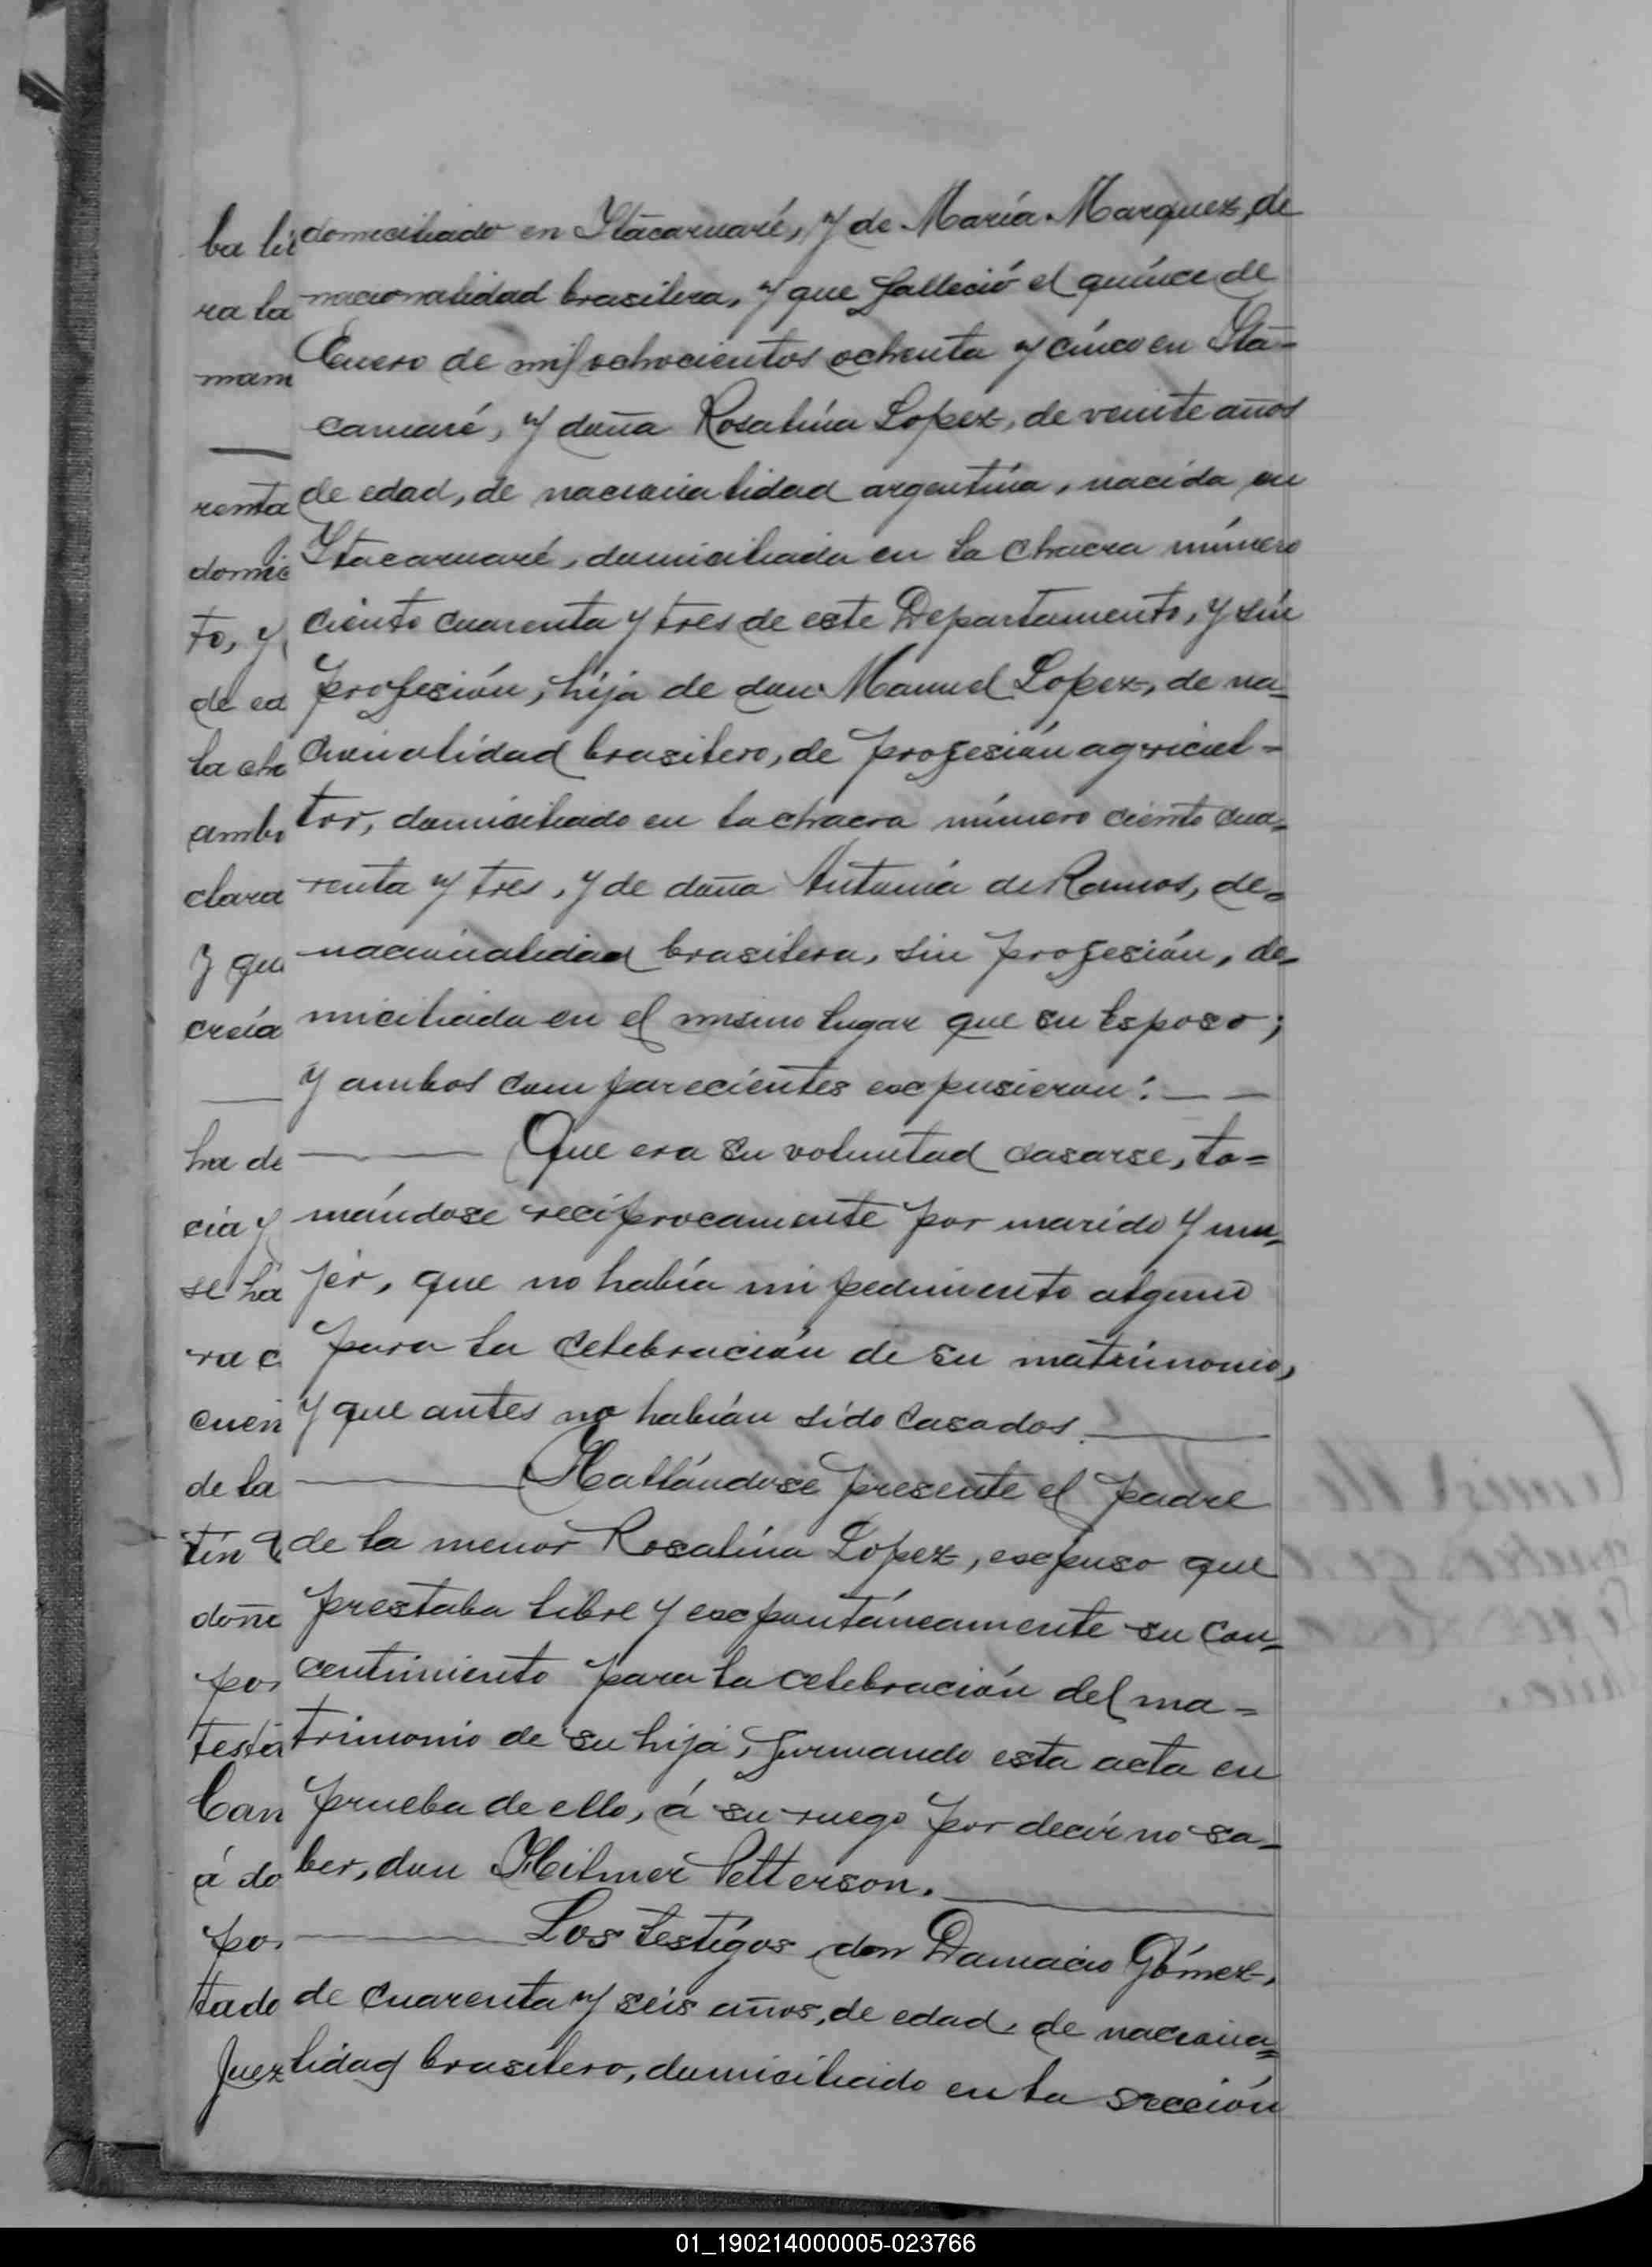 ba li domiciliado en Itacaruaré, y de María Marquez, de
ra la nacionalidad brasilera, y que falleció el quince de
mam Enero de mil ochocientos ochenta y cinco en Ita-
caruaré, y doña Rosalina Lopez, de veinte años
renta de edad, de nacionalidad argentina, nacida en
domic Itacaruaré, domiciliada en la chacra número
to, y ciento cuarenta y tres de este Departamento, y sin
de ed profesión, hija de don Manuel Lopez, de na-
la cha cionalidad brasilero, de profesión agricul-
ambo tor, domiciliado en la chacra número ciento cua-
clara renta y tres, y de doña Antonia de Ramos, de-
y que nacionalidad brasilera, sin profesión, do-
creía miciliada en el mismo lugar que su esposo;
y ambos comparecientes expusieron:
ha de Que era su voluntad casarse, to=
cia y mándose recíprocamente por marido y mu-
se ha jer, que no había impedimento alguno
ra c para la celebración de su matrimonio,
cuen y que antes no habían sido casados.
de la Hallándose presente el padre
tin de la menor Rosalina Lopez, expuso que
doñe prestaba libre y expontáneamente su con-
por centimiento para la celebración del ma-
testa trimonio de su hija, firmando esta acta en
Can prueba de ello, á su ruego por decir no sa-
á do ber, don Hilmer Petterson.
por Los testigos don Damacio Gómez,
tado de cuarenta y seis años, de edad, de naciona-
Juez lidad brasilero, domiciliado en la sección
01_190214000005-023766